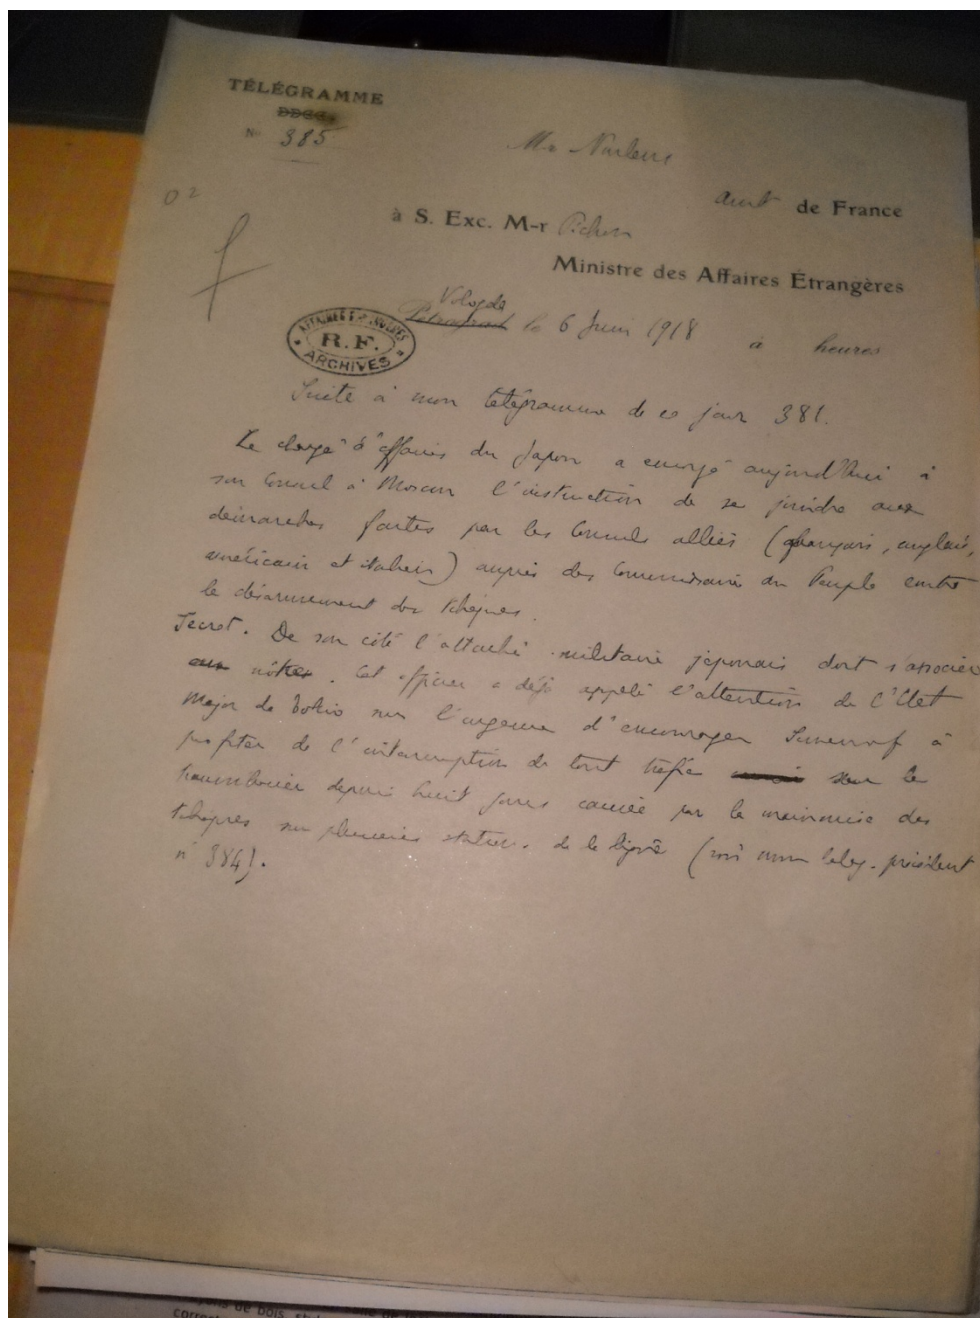 TÉLÉGRAMME
N° 385
Mr Noulens
02
Ambr de France
à S. Exc. M-r Pichon
Ministre des Affaires Étrangères
Vologda
Petrograd le 6 Juin 1918 à heures
AFFAIRES ETRANGERES
R.F.
ARCHIVES
Suite à mon télégramme de ce jour 381.
Le chargé d'affaires du Japon a envoyé aujourd'hui à
son Consul à Moscou l'instruction de se joindre aux
démarches faites par les Consuls alliés (français, anglais,
américain et italien) auprès des Commissaires du Peuple contre
le désarmement des tchèques.
Secret. De son côté l'attaché militaire japonais doit s'associer
aux nôtres. Cet officier a déjà appelé l'attention de l'Etat
Major de Tokio sur l'urgence d'encourager Semenof à
profiter de l'interruption de tout trafic sur le
transsibérien depuis huit jours causée par la mainmise des
tchèques sur plusieurs stations de la ligne (voir mon télég. précédent
n° 384).